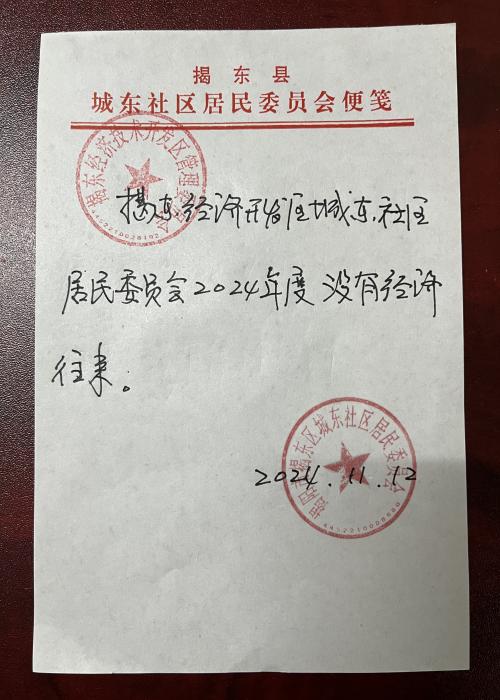 揭东县
城东社区居民委员会便笺
揭东经济技术开发区管理委员会
4452210028192
揭东经济开发区城东社区
居民委员会2024年度没有经济
往来。
揭阳市揭东区城东社区居民委员会
2024.11.12
4452210008680